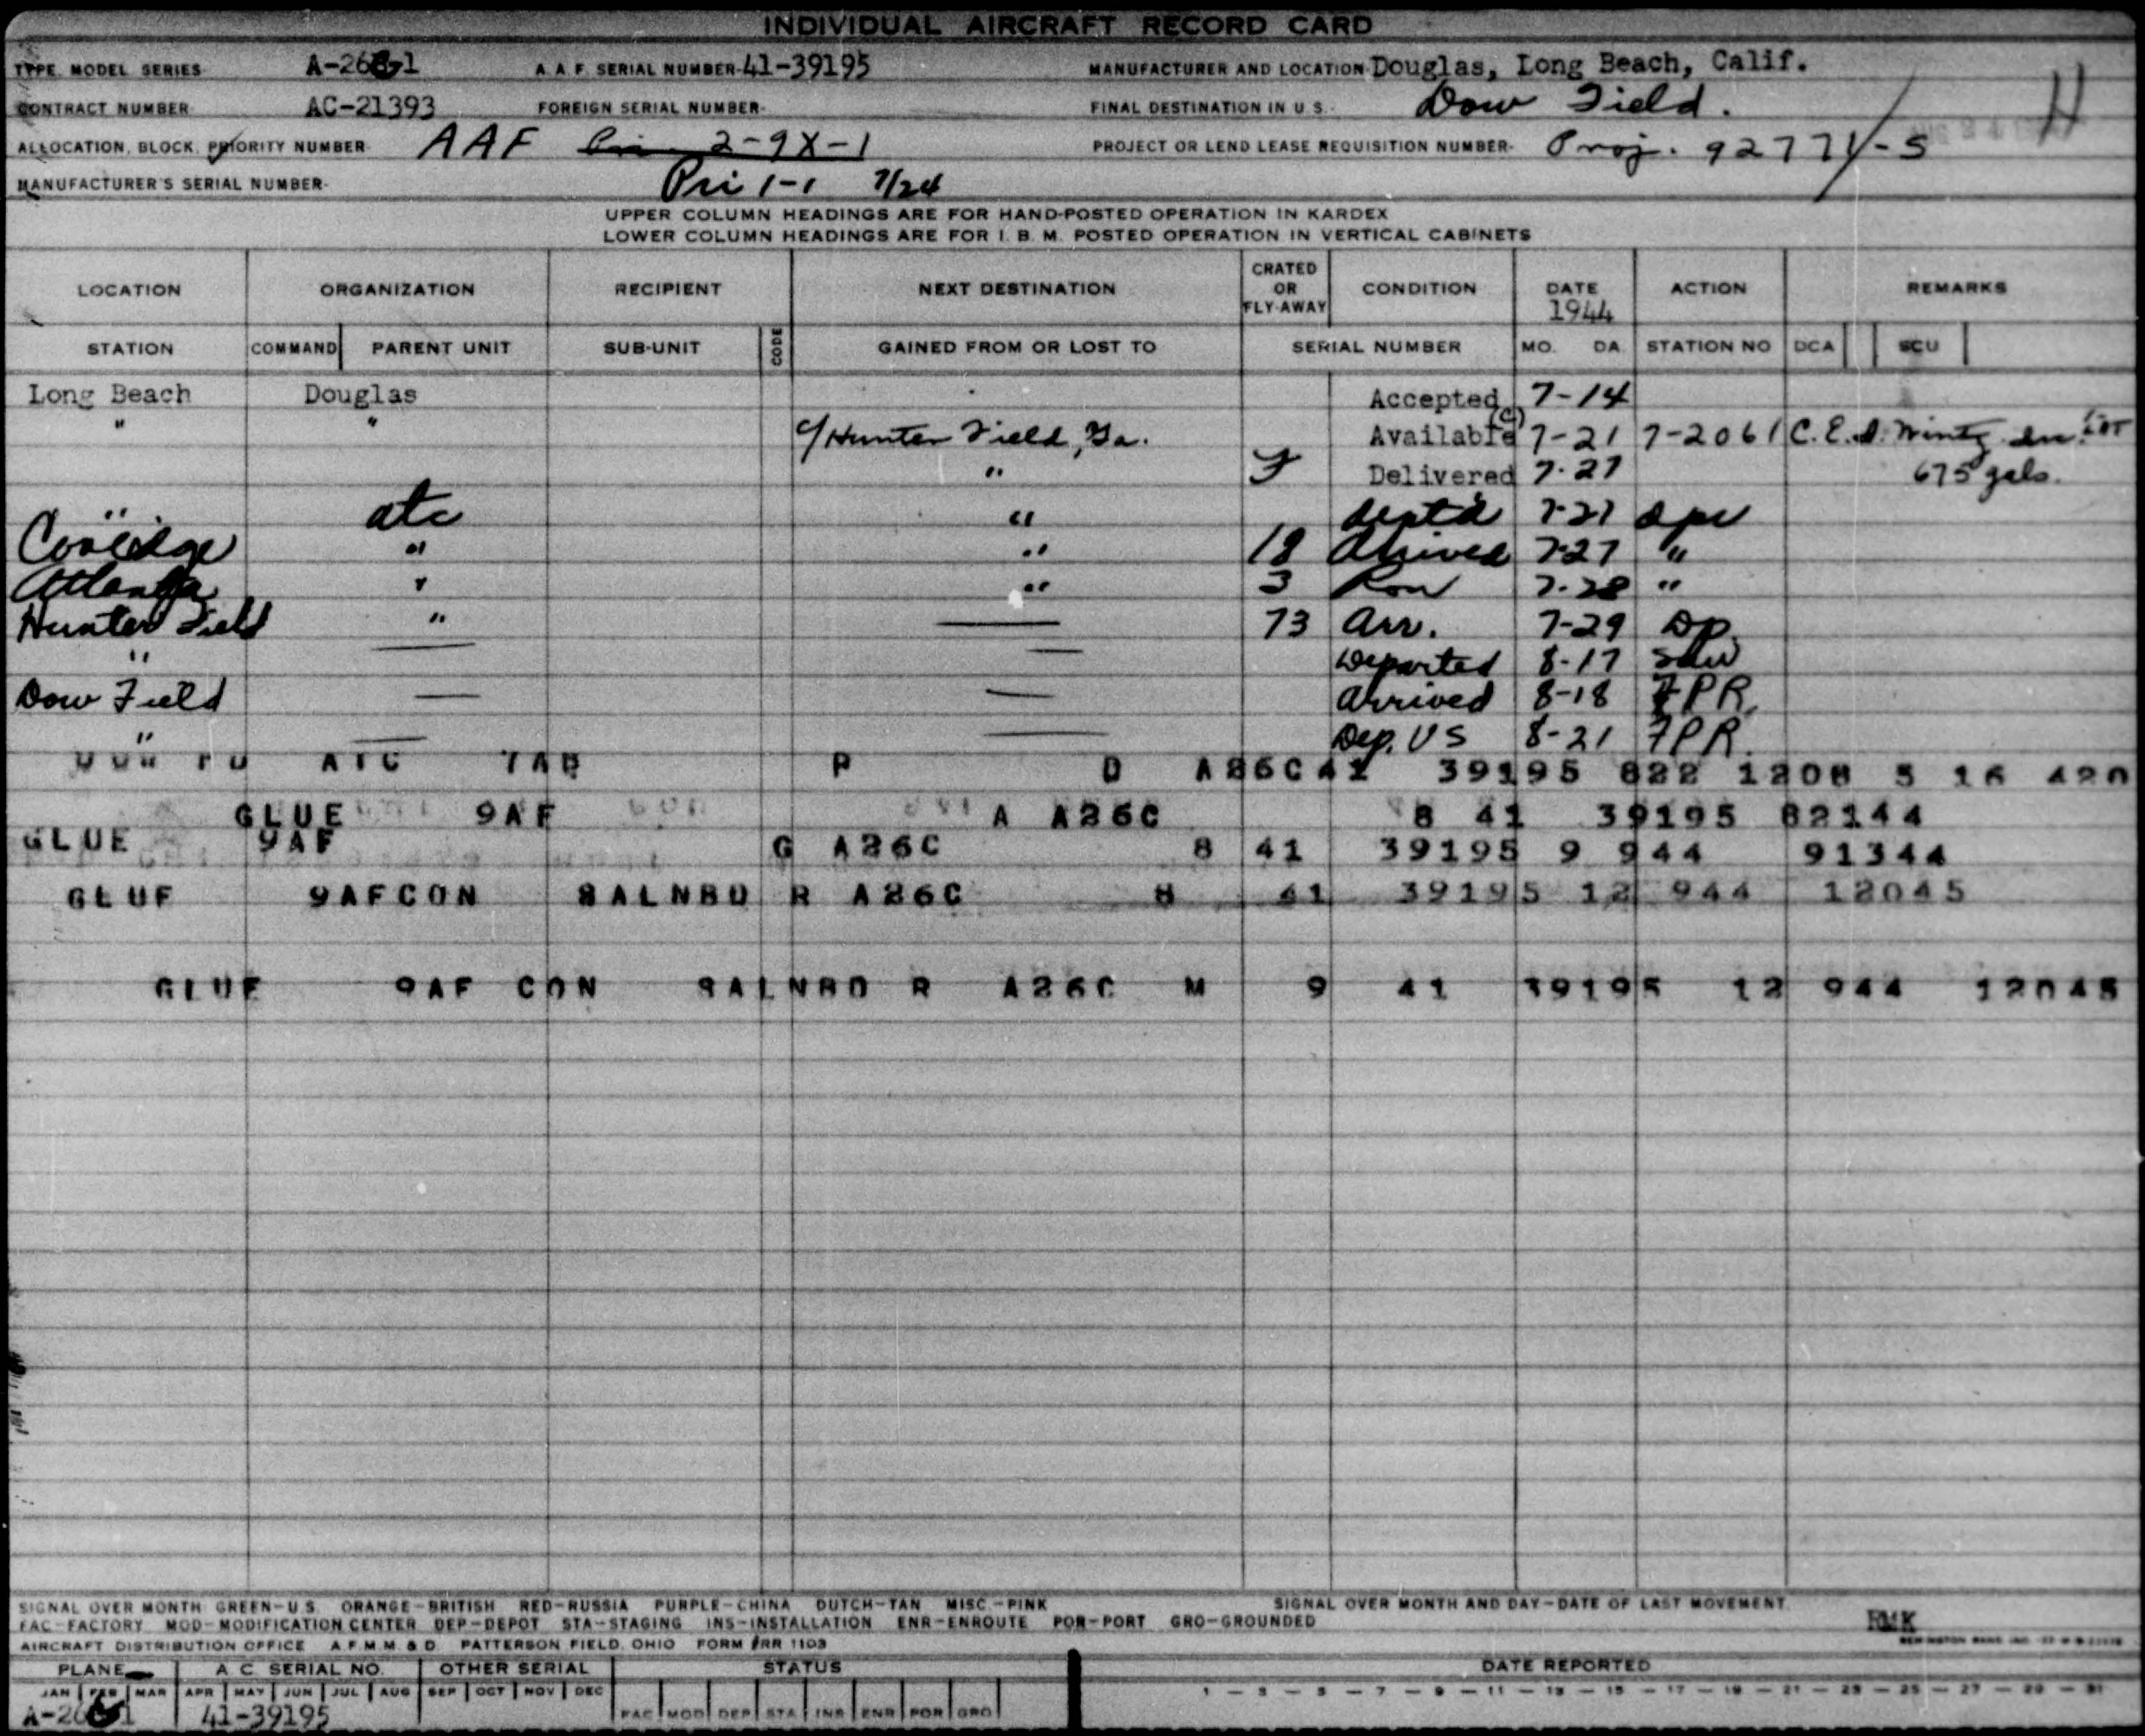 INDIVIDUAL AIRCRAFT RECORD CARD
TYPE, MODEL SERIES A-26C-1 A.A.F. SERIAL NUMBER- 41-39195 MANUFACTURER AND LOCATION- Douglas, Long Beach, Calif.
CONTRACT NUMBER- AC-21393 FOREIGN SERIAL NUMBER- FINAL DESTINATION IN U.S.- Dow Field.
ALLOCATION, BLOCK, PRIORITY NUMBER- AAF Pri 2-9X-1 PROJECT OR LEND LEASE REQUISITION NUMBER- Proj. 92771-S H
MANUFACTURER'S SERIAL NUMBER- Pri 1-1 7/24
UPPER COLUMN HEADINGS ARE FOR HAND-POSTED OPERATION IN KARDEX
LOWER COLUMN HEADINGS ARE FOR I. B. M. POSTED OPERATION IN VERTICAL CABINETS
LOCATION ORGANIZATION RECIPIENT NEXT DESTINATION CRATED OR FLY-AWAY CONDITION DATE 1944 ACTION REMARKS
STATION COMMAND PARENT UNIT SUB-UNIT CODE GAINED FROM OR LOST TO SERIAL NUMBER MO. DA. STATION NO DCA SCU
Long Beach Douglas Accepted 7-14
" " c/Hunter Field, Ga. Available (C) 7-21 7-2061 C.E.
" F Delivered 7-27 675 gals.
" atc " 7-27
Coolidge " " 18 Arrived 7-27 "
Atlanta " " 3 Ron 7-28 "
Hunter Field " — 73 Arr. 7-29 Dp.
" — — Departed 8-17
Dow Field — — Arrived 8-18 FPR.
" — — Dep. US 8-21 FPR.
DOW FD ATC 7AB P D A26C41 39195 822 1208 5 16 420
GLUE 9AF A A26C 8 41 39195 82144
GLUE 9AF G A26C 8 41 39195 9 944 91344
GLUE 9AFCON 8ALNBD R A26C 8 41 39195 12 944 12045
GLUE 9AF CON 8ALNBD R A26C M 9 41 39195 12 944 12045
SIGNAL OVER MONTH GREEN-U.S. ORANGE-BRITISH RED-RUSSIA PURPLE-CHINA DUTCH-TAN MISC.-PINK SIGNAL OVER MONTH AND DAY-DATE OF LAST MOVEMENT.
FAC-FACTORY MOD-MODIFICATION CENTER DEP-DEPOT STA-STAGING INS-INSTALLATION ENR-ENROUTE POR-PORT GRO-GROUNDED RMK
AIRCRAFT DISTRIBUTION OFFICE A.F.M.M. & D. PATTERSON FIELD, OHIO FORM #RR 1103
PLANE A C SERIAL NO. OTHER SERIAL STATUS DATE REPORTED
JAN FEB MAR APR MAY JUN JUL AUG SEP OCT NOV DEC 1 - 3 - 5 - 7 - 9 - 11 - 13 - 15 - 17 - 19 - 21 - 23 - 25 - 27 - 29 - 31
A-26C-1 41-39195 FAC MOD DEP STA INS ENR POR GRO